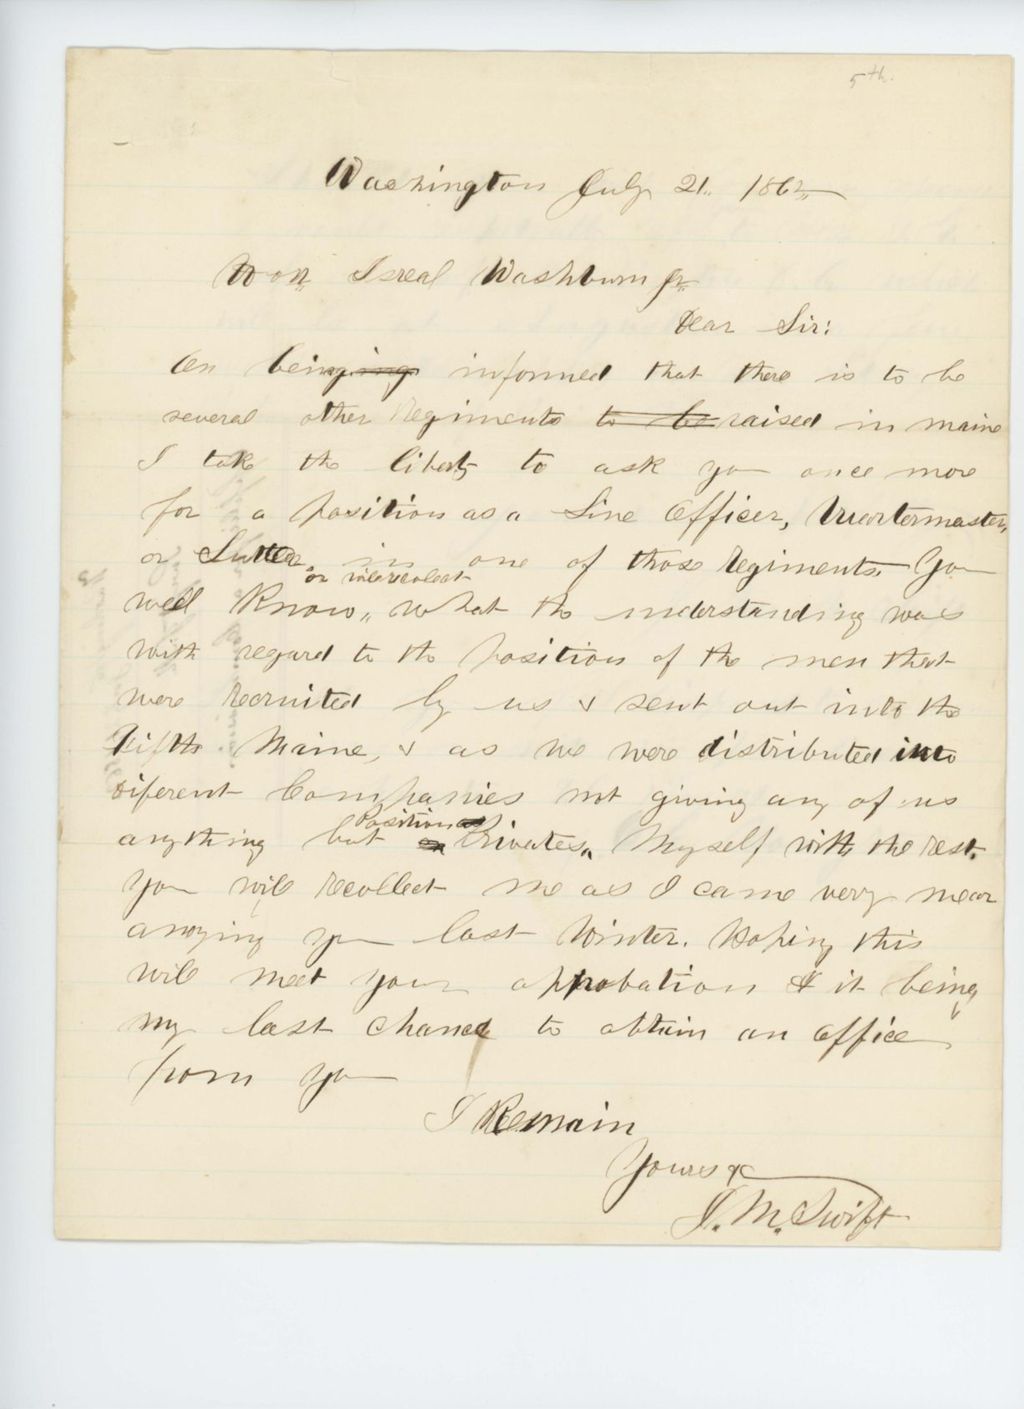 5th.
Washington July 21. 1862
Hon. Isreal Washburn Jr.
Dear Sir:
On being informed that there is to be
several other Regiments to be raised in maine
I take the liberty to ask you once more
for a position as a Line Officer, Quartermaster,
or Sutter, in one of those Regiments. You
or will recolect
well Know, what the understanding was
with regard to the position of the men that
were recruited by us & sent out into the
Fifth Maine, & as we were distributed into
diferent Companies not giving any of us
Position as
anything but Privates, Myself with the rest.
You will recollect me as I came very near
anoying you last Winter. Hoping this
will meet your approbation & it being
my last chance to obtain an office
from you
I Remain
Yours &c
J. M. Swift